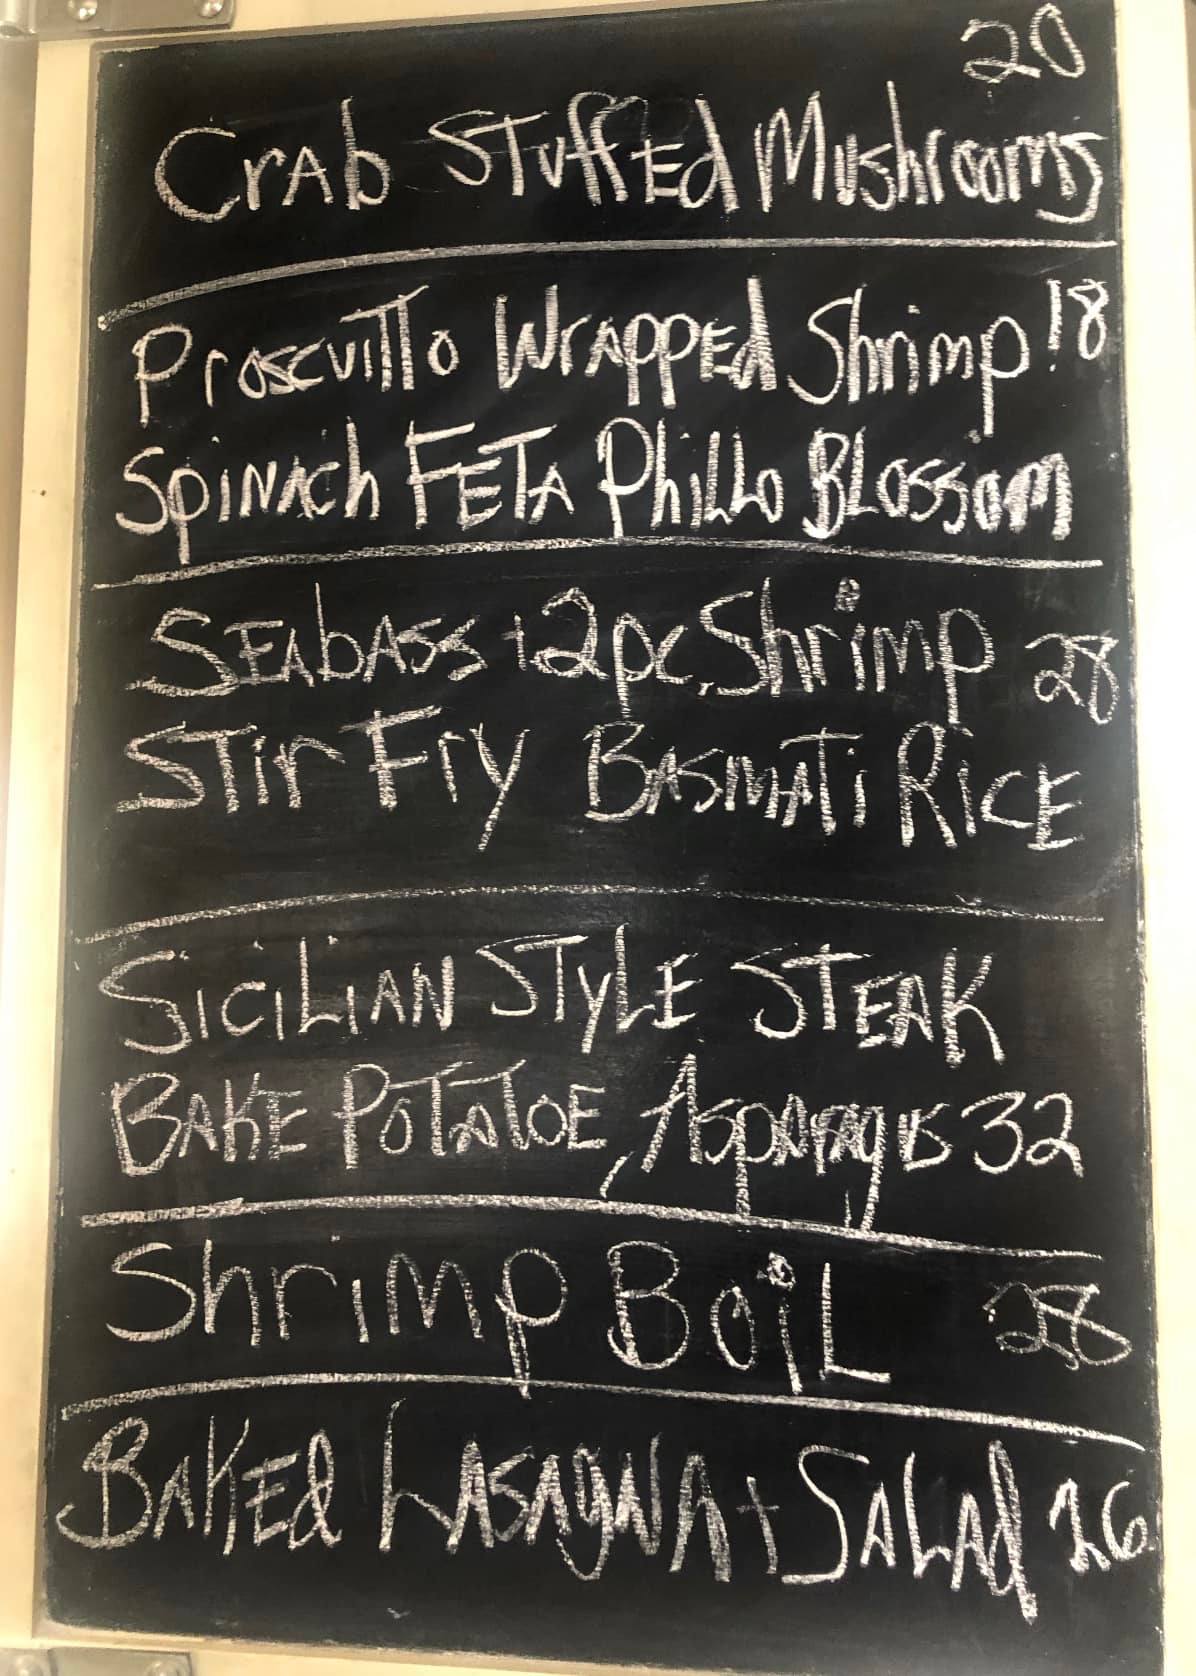 20
Crab Stuffed Mushrooms
Proscuitto Wrapped Shrimp 18
Spinach Feta Phillo Blossom
Seabass +2pc, Shrimp 28
Stir Fry Basmati Rice
Sicilian Style Steak
Bake Potatoe, Asparagus 32
Shrimp Boil 28
Baked Lasagna + Salad 26